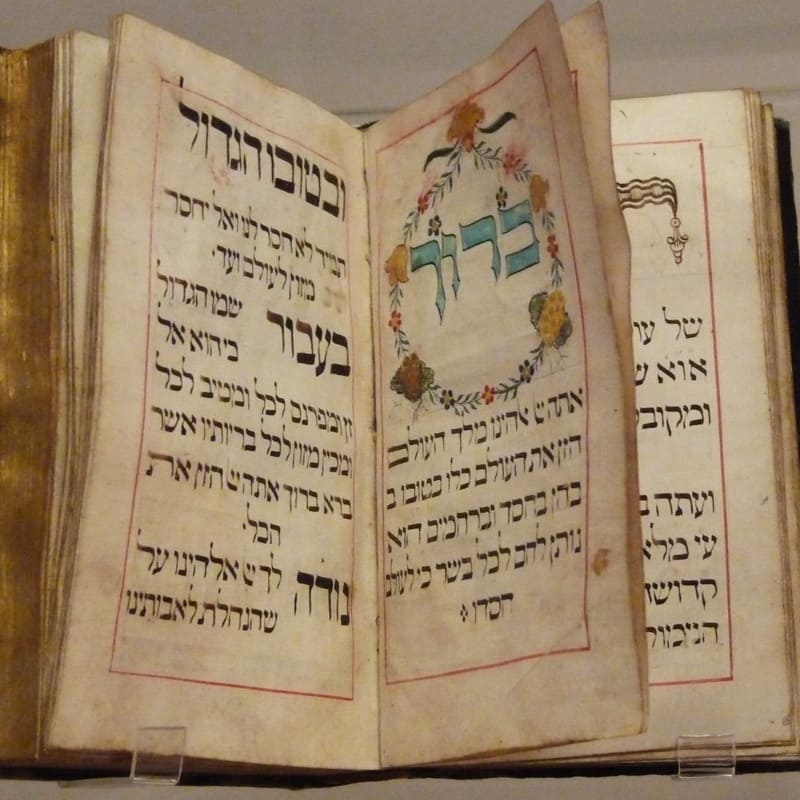 של
אוא
ועתה
עי
ברוך
אתה יי אלהינו מלך העולם
הזן את העולם כלו בטובו ב
בחן בחסד וברחמים הוא
נותן לחם לכל בשר כי לעולם
חסדו
ובטובו הגדול
תמיד לא חסר לנו ואל יחסר
מזון לעולם ועד.
בעבור שמו הגדול
כי הוא אל
זן ומפרנס לכל ומטיב לכל
ומכין מזון לכל בריותיו אשר
ברא ברוך אתה יי הזן את
הכל.
נודה לך יי אלהינו על
שהנחלת לאבותינו